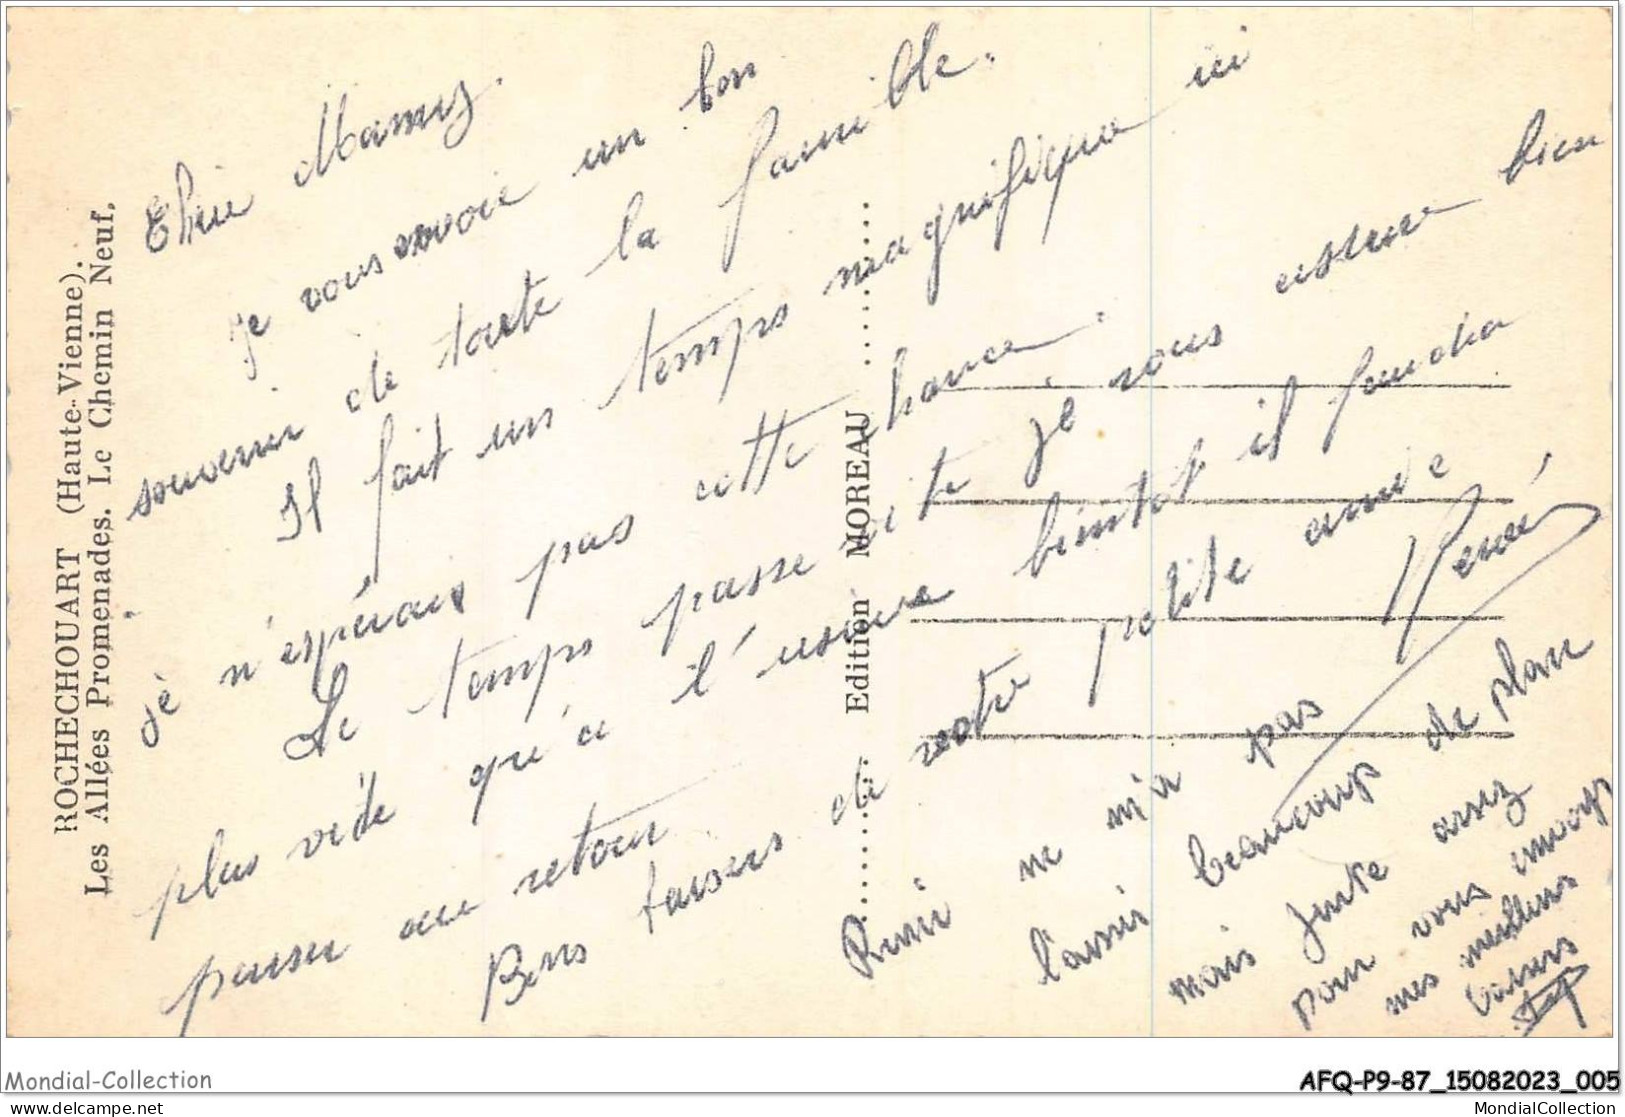 ROCHECHOUART (Haute-Vienne).
Les Allées Promenades. Le Chemin Neuf.
Edition MOREAU
Chère Mamy.
Je vous envoie un bon
souvenir de toute la famille.
Il fait un temps magnifique ici
je n'espérais pas cette chance.
Le temps passe vite je vous assure bien
plus vide qu'à l'usine bientot il faudra
penser au retour
Bons baisers de votre petite amie
Renée
ne m'a pas
laissé beaucoup de place
mais juste assez
pour vous envoyer
mes meilleurs
baisers
Mondial-Collection
AFQ-P9-87_15082023_005
www.delcampe.net
MondialCollection